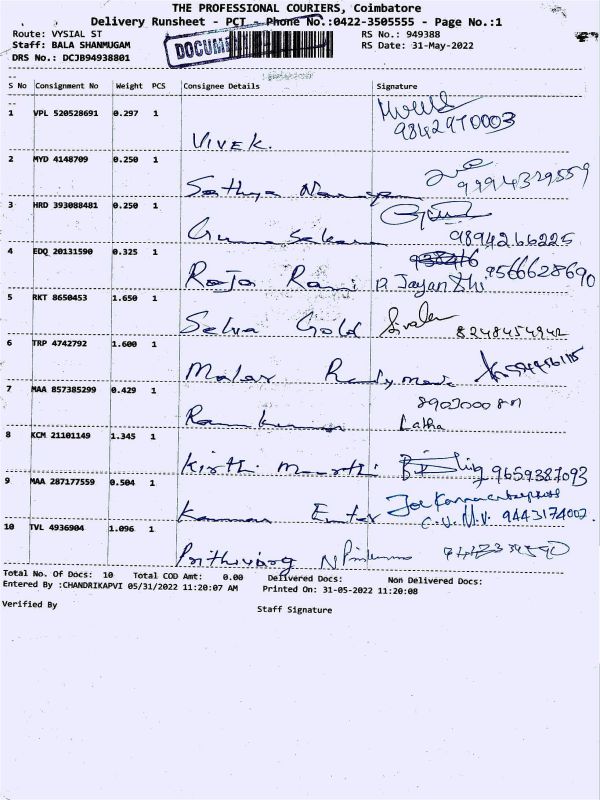 THE PROFESSIONAL COURIERS, Coimbatore
Delivery Runsheet - PCT - Phone No.:0422-3505555 - Page No.:1
Route: VYSIAL ST RS No.: 949388
Staff: BALA SHANMUGAM RS Date: 31-May-2022
DRS No.: DCJB94938801
DOCUM
S No Consignment No Weight PCS Consignee Details Signature
1 VPL 520528691 0.297 1 VIVEK. 9842970003
2 MYD 4148709 0.250 1 Sathya 9994329559
3 HRD 393088481 0.250 1 Gunasekaran 9894266225
4 EDQ 20131590 0.325 1 Raja Rani P. Jayanthi 9566628690
5 RKT 8650453 1.650 1 Selva Gold 8248454942
6 TRP 4742792 1.600 1 Malar Readymade
7 MAA 857385299 0.429 1 Ramkumar Latha
8 KCM 21101149 1.345 1 Kirthi Moorthi 9659387093
9 MAA 287177559 0.504 1 Kannan Enter For Kannan Enterprises
C.V.M.V. 9443174002.
10 TVL 4936904 1.096 1 Prithiviraj N
Total No. Of Docs: 10 Total COD Amt: 0.00 Delivered Docs: Non Delivered Docs:
Entered By :CHANDRIKAPVI 05/31/2022 11:20:07 AM Printed On: 31-05-2022 11:20:08
Verified By Staff Signature